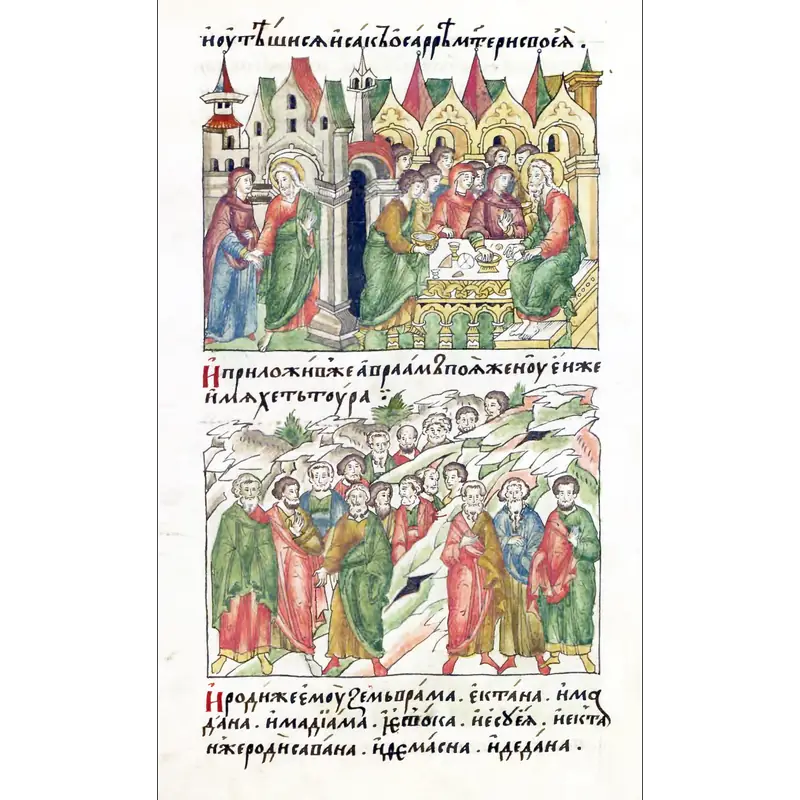 и҆ ᲂу҆тѣшисѧ и҆сакъ ѡ҆ саррѣ мт҃ери своеѧ҆ .
И҆ приложи́вже а҆враамъ поѧ҆ же́нᲂу е҆и́же
и҆мѧ хетьтᲂу́ра :
И҆ роди́же е҆мᲂу̀ земьвра́ма . е҆кта́на . и҆ма
да́на . и҆ мадїа́ма . і҆есво́ка . и҆ е҆сᲂуе́ѧ . и҆ е҆кта
нже роди̇̀ сава́на . и҆ ѳема́сна . и҆ деда́на .